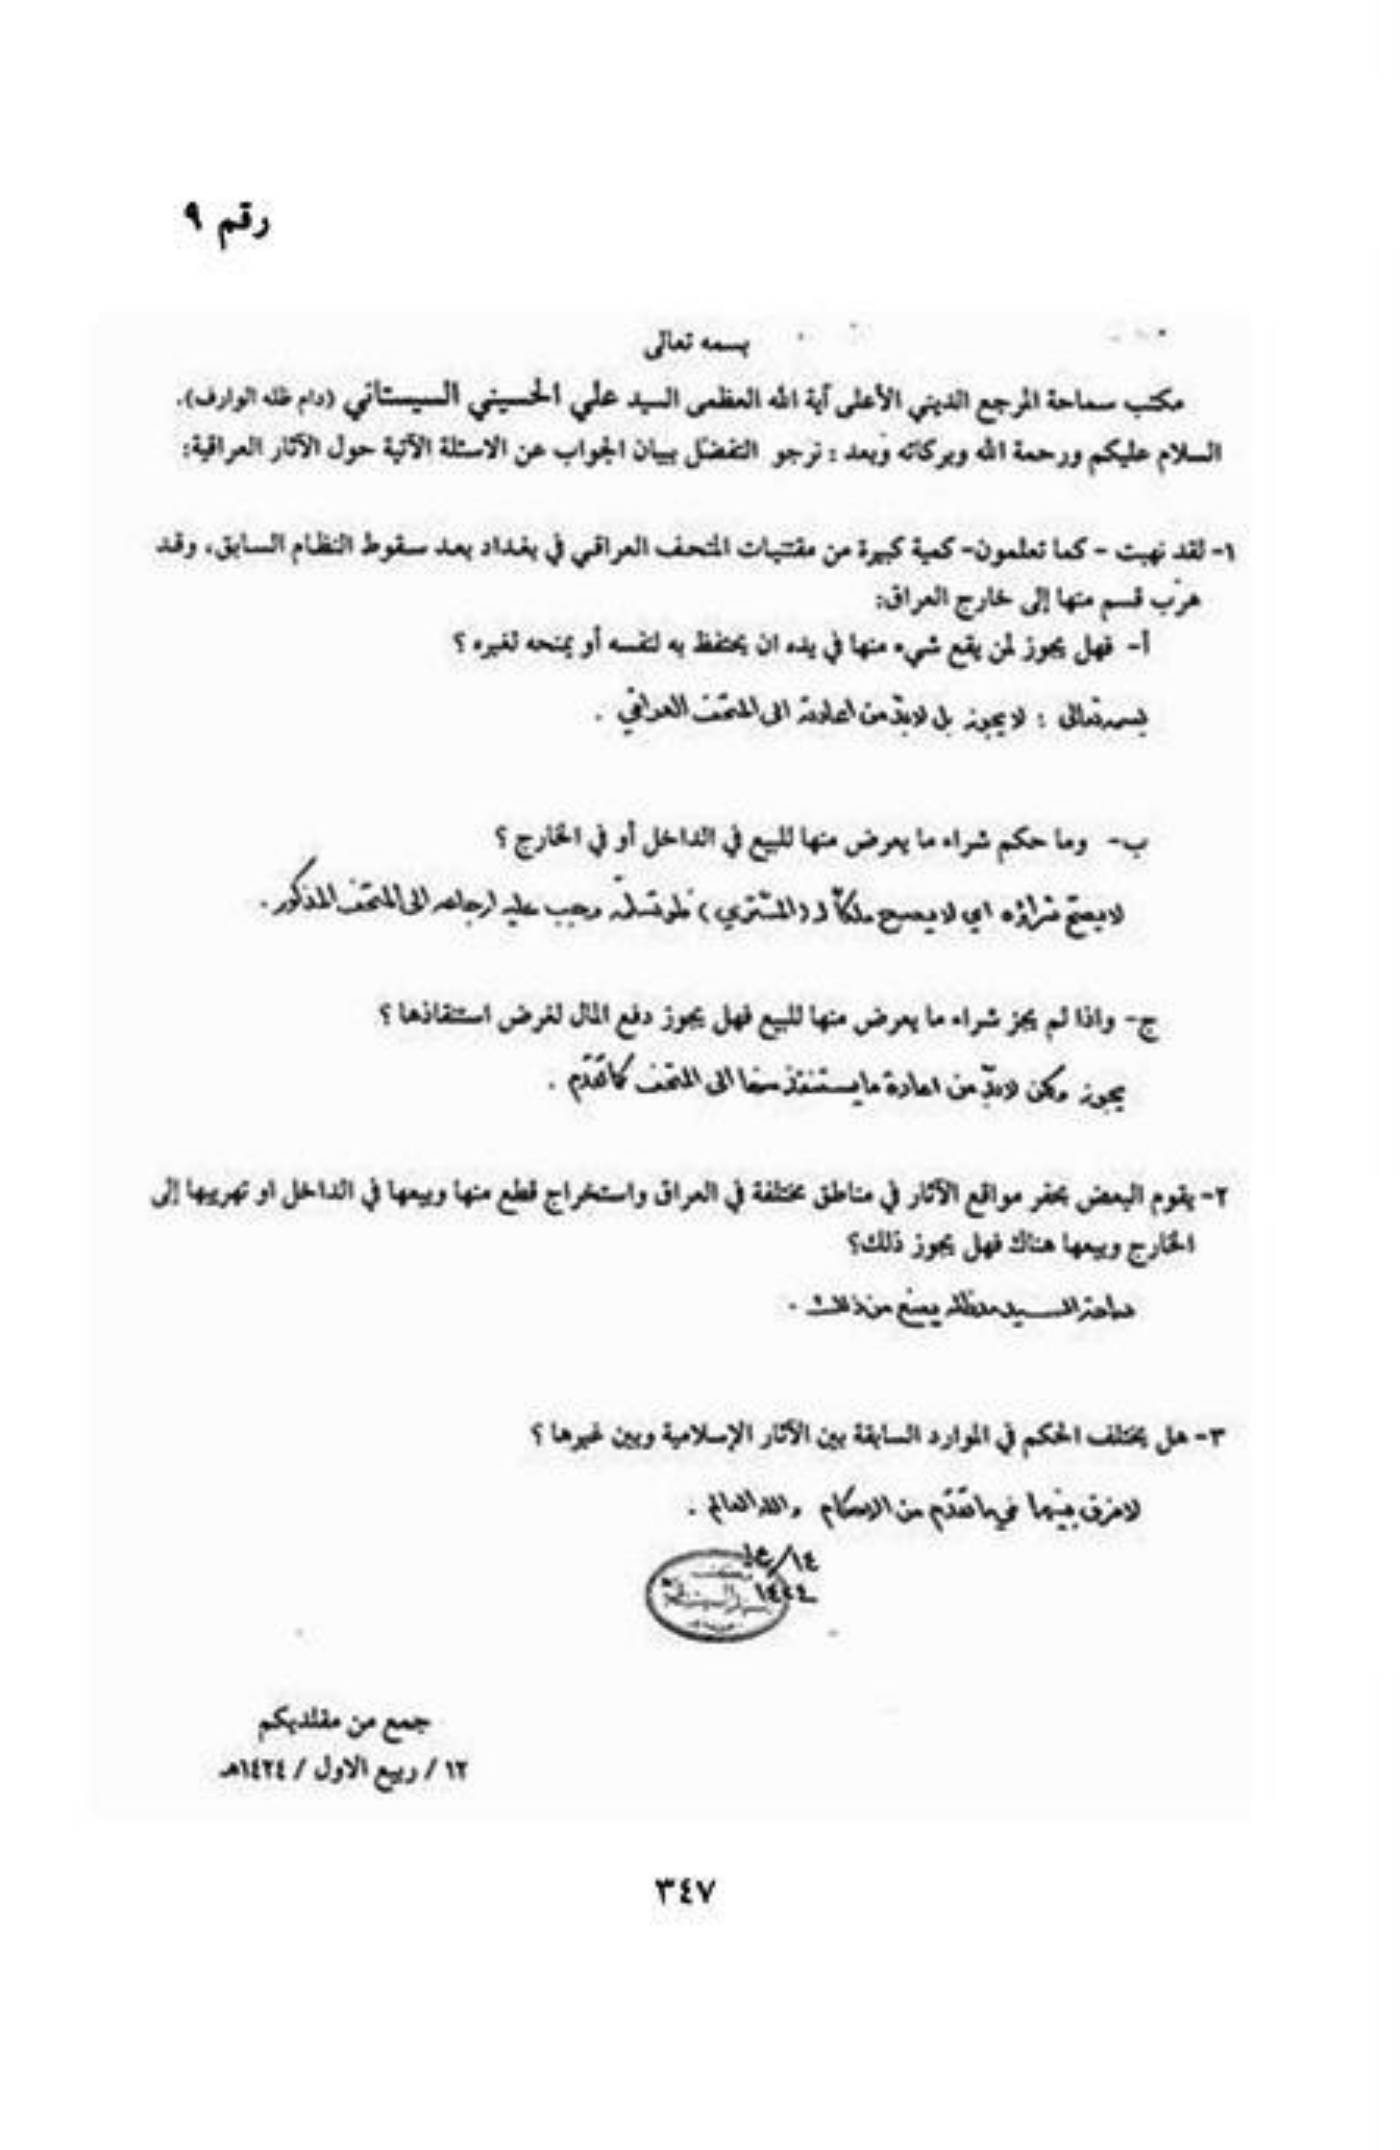 رقم ٩
بسمه تعالى
مكتب سماحة المرجع الديني الأعلى آية الله العظمى السيد علي الحسيني السيستاني (دام ظله الوارف).
السلام عليكم ورحمة الله وبركاته وبعد : نرجو التفضل ببيان الجواب عن الاسئلة الآتية حول الآثار العراقية:
١- لقد نهبت - كما تعلمون- كمية كبيرة من مقتنيات المتحف العراقي في بغداد بعد سقوط النظام السابق، وقد
هرّب قسم منها إلى خارج العراق:
أ- فهل يجوز لمن يقع شيء منها في يده ان يحتفظ به لنفسه أو يمنحه لغيره ؟
بسمه تعالى : لا يجوز بل لا بدّ من اعادته الى المتحف العراقي .
ب- وما حكم شراء ما يعرض منها للبيع في الداخل أو في الخارج ؟
لا يصحّ شراؤه اي لا يصبح ملكاً لـ (المشتري) فلو تسلّمه وجب عليه ارجاعه الى المتحف المذكور .
ج- واذا لم يجز شراء ما يعرض منها للبيع فهل يجوز دفع المال لغرض استنقاذها ؟
يجوز ولكن لا بدّ من اعادة ما يستنقذ منها الى المتحف كما تقدّم .
٢- يقوم البعض بحفر مواقع الآثار في مناطق مختلفة في العراق واستخراج قطع منها وبيعها في الداخل او تهريبها إلى
الخارج وبيعها هناك فهل يجوز ذلك؟
سماحة السيد مدظله يمنع من ذلك .
٣- هل يختلف الحكم في الموارد السابقة بين الآثار الإسلامية وبين غيرها ؟
لا فرق بينهما في ما تقدّم من الاحكام والله العالم .
١٤
١٤٢٤
مكتب
جمع من مقلديكم
١٢ / ربيع الاول / ١٤٢٤هـ
٣٤٧